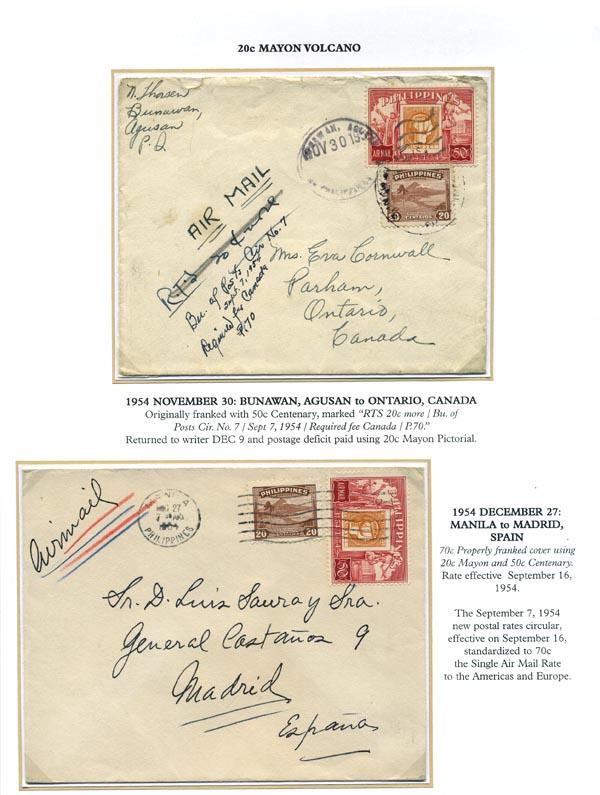 20c MAYON VOLCANO
N. Thorsen
Bunawan,
Agusan
P. I.
BUNAWAN, AGUSAN
NOV 30 195
PHILIPPINES
PHILIPPINES
AIR MAIL 50c
PHILIPPINES
20 CENTAVOS 20
AIR MAIL
RTS 20¢ more
Bu. of Posts Cir No. 7
Sept. 7, 1954
Required fee Canada
P.70
Mrs. Eva Cornwall
Parham,
Ontario,
Canada
1954 NOVEMBER 30: BUNAWAN, AGUSAN to ONTARIO, CANADA
Originally franked with 50c Centenary, marked “RTS 20c more / Bu. of
Posts Cir. No. 7 / Sept 7, 1954 / Required fee Canada / P.70.”
Returned to writer DEC 9 and postage deficit paid using 20c Mayon Pictorial.
Airmail
MANILA
27
1954
PHILIPPINES
PHILIPPINES
20 CENTAVOS 20
PHILIPPINES
AIR MAIL 50c
Sr. D. Luis Saura y Sra.
General Castaños 9
Madrid
España
1954 DECEMBER 27:
MANILA to MADRID,
SPAIN
70c Properly franked cover using
20c Mayon and 50c Centenary.
Rate effective September 16,
1954.
The September 7, 1954
new postal rates circular,
effective on September 16,
standardized to 70c
the Single Air Mail Rate
to the Americas and Europe.